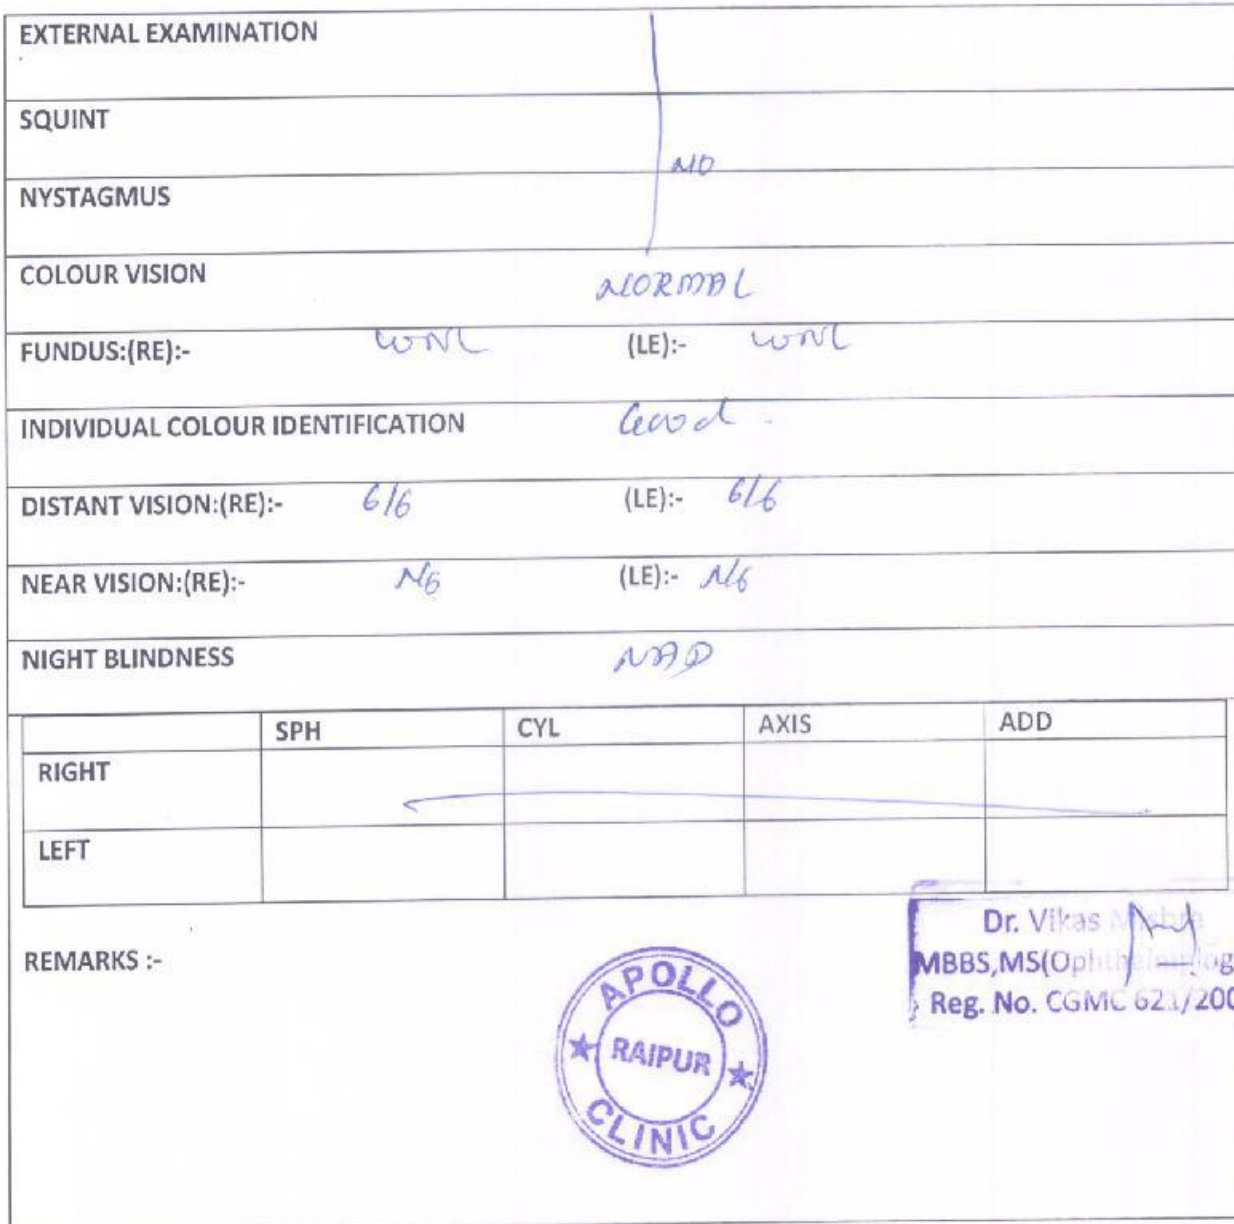 EXTERNAL EXAMINATION
SQUINT
NO
NYSTAGMUS
COLOUR VISION NORMAL
FUNDUS:(RE):- WNL (LE):- WNL
INDIVIDUAL COLOUR IDENTIFICATION Good.
DISTANT VISION:(RE):- 6/6 (LE):- 6/6
NEAR VISION:(RE):- N6 (LE):- N6
NIGHT BLINDNESS NAD
SPH CYL AXIS ADD
RIGHT
LEFT
REMARKS :-
APOLLO
RAIPUR
CLINIC
Dr. Vikas Mishra
MBBS,MS(Ophthalmolog
Reg. No. CGMC 621/200